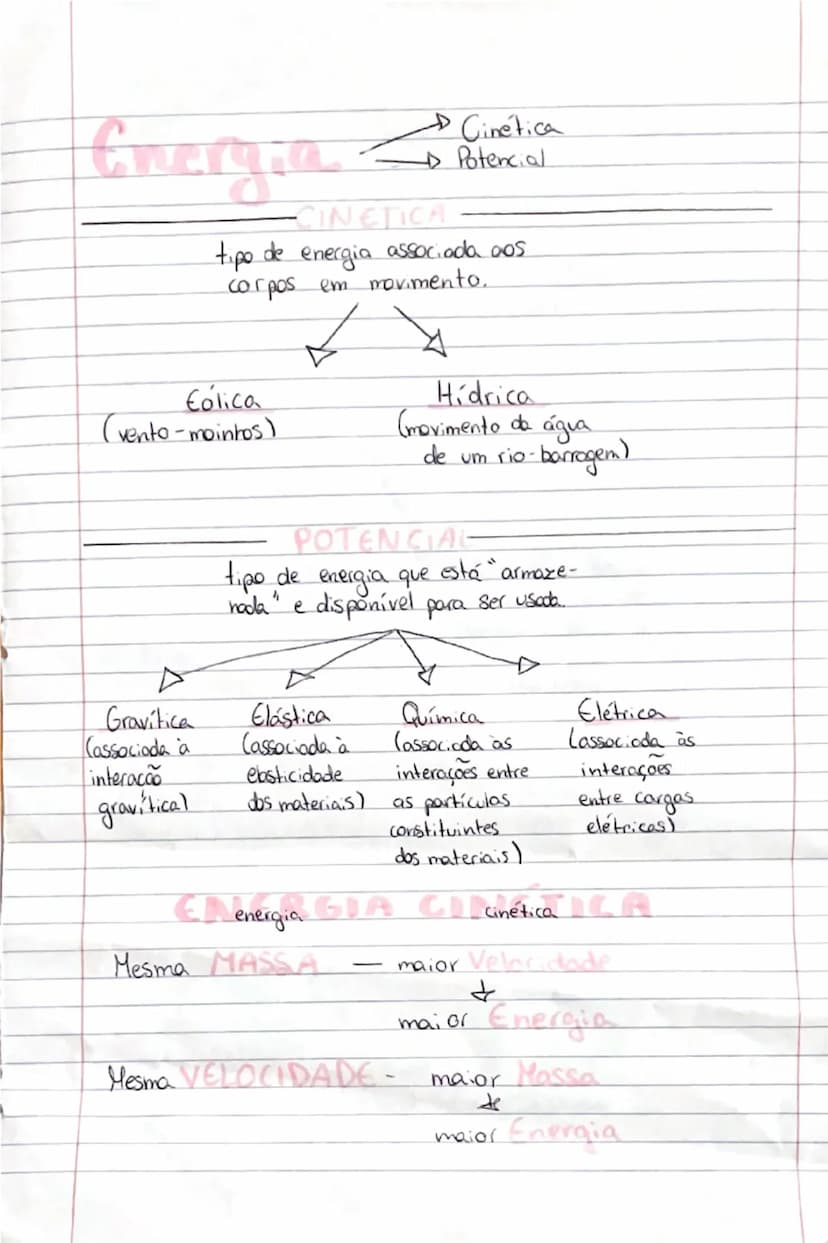 Energia
Cinética
Potencial
CINETICA
tipo de energia associada aos
corpos em movimento.
Eólica
(vento-moinhos)
Hídrica
(movimento da água
de um rio-barragem)
POTENCIAL
tipo de energia que está "armaze-
nada" e disponível para ser usada.
Gravítica
(associada à
interacão
gravítica)
Elástica
(associada à
elasticidade
dos materiais)
Química
(associada às
interações entre
as partículas
constituintes
dos materiais)
Elétrica
(associada às
interações
entre cargas
elétricas)
ENERGIA CINÉTICA
energia cinética
Mesma MASSA — maior Velocidade
maior Energia
Mesma VELOCIDADE - maior Massa
maior Energia